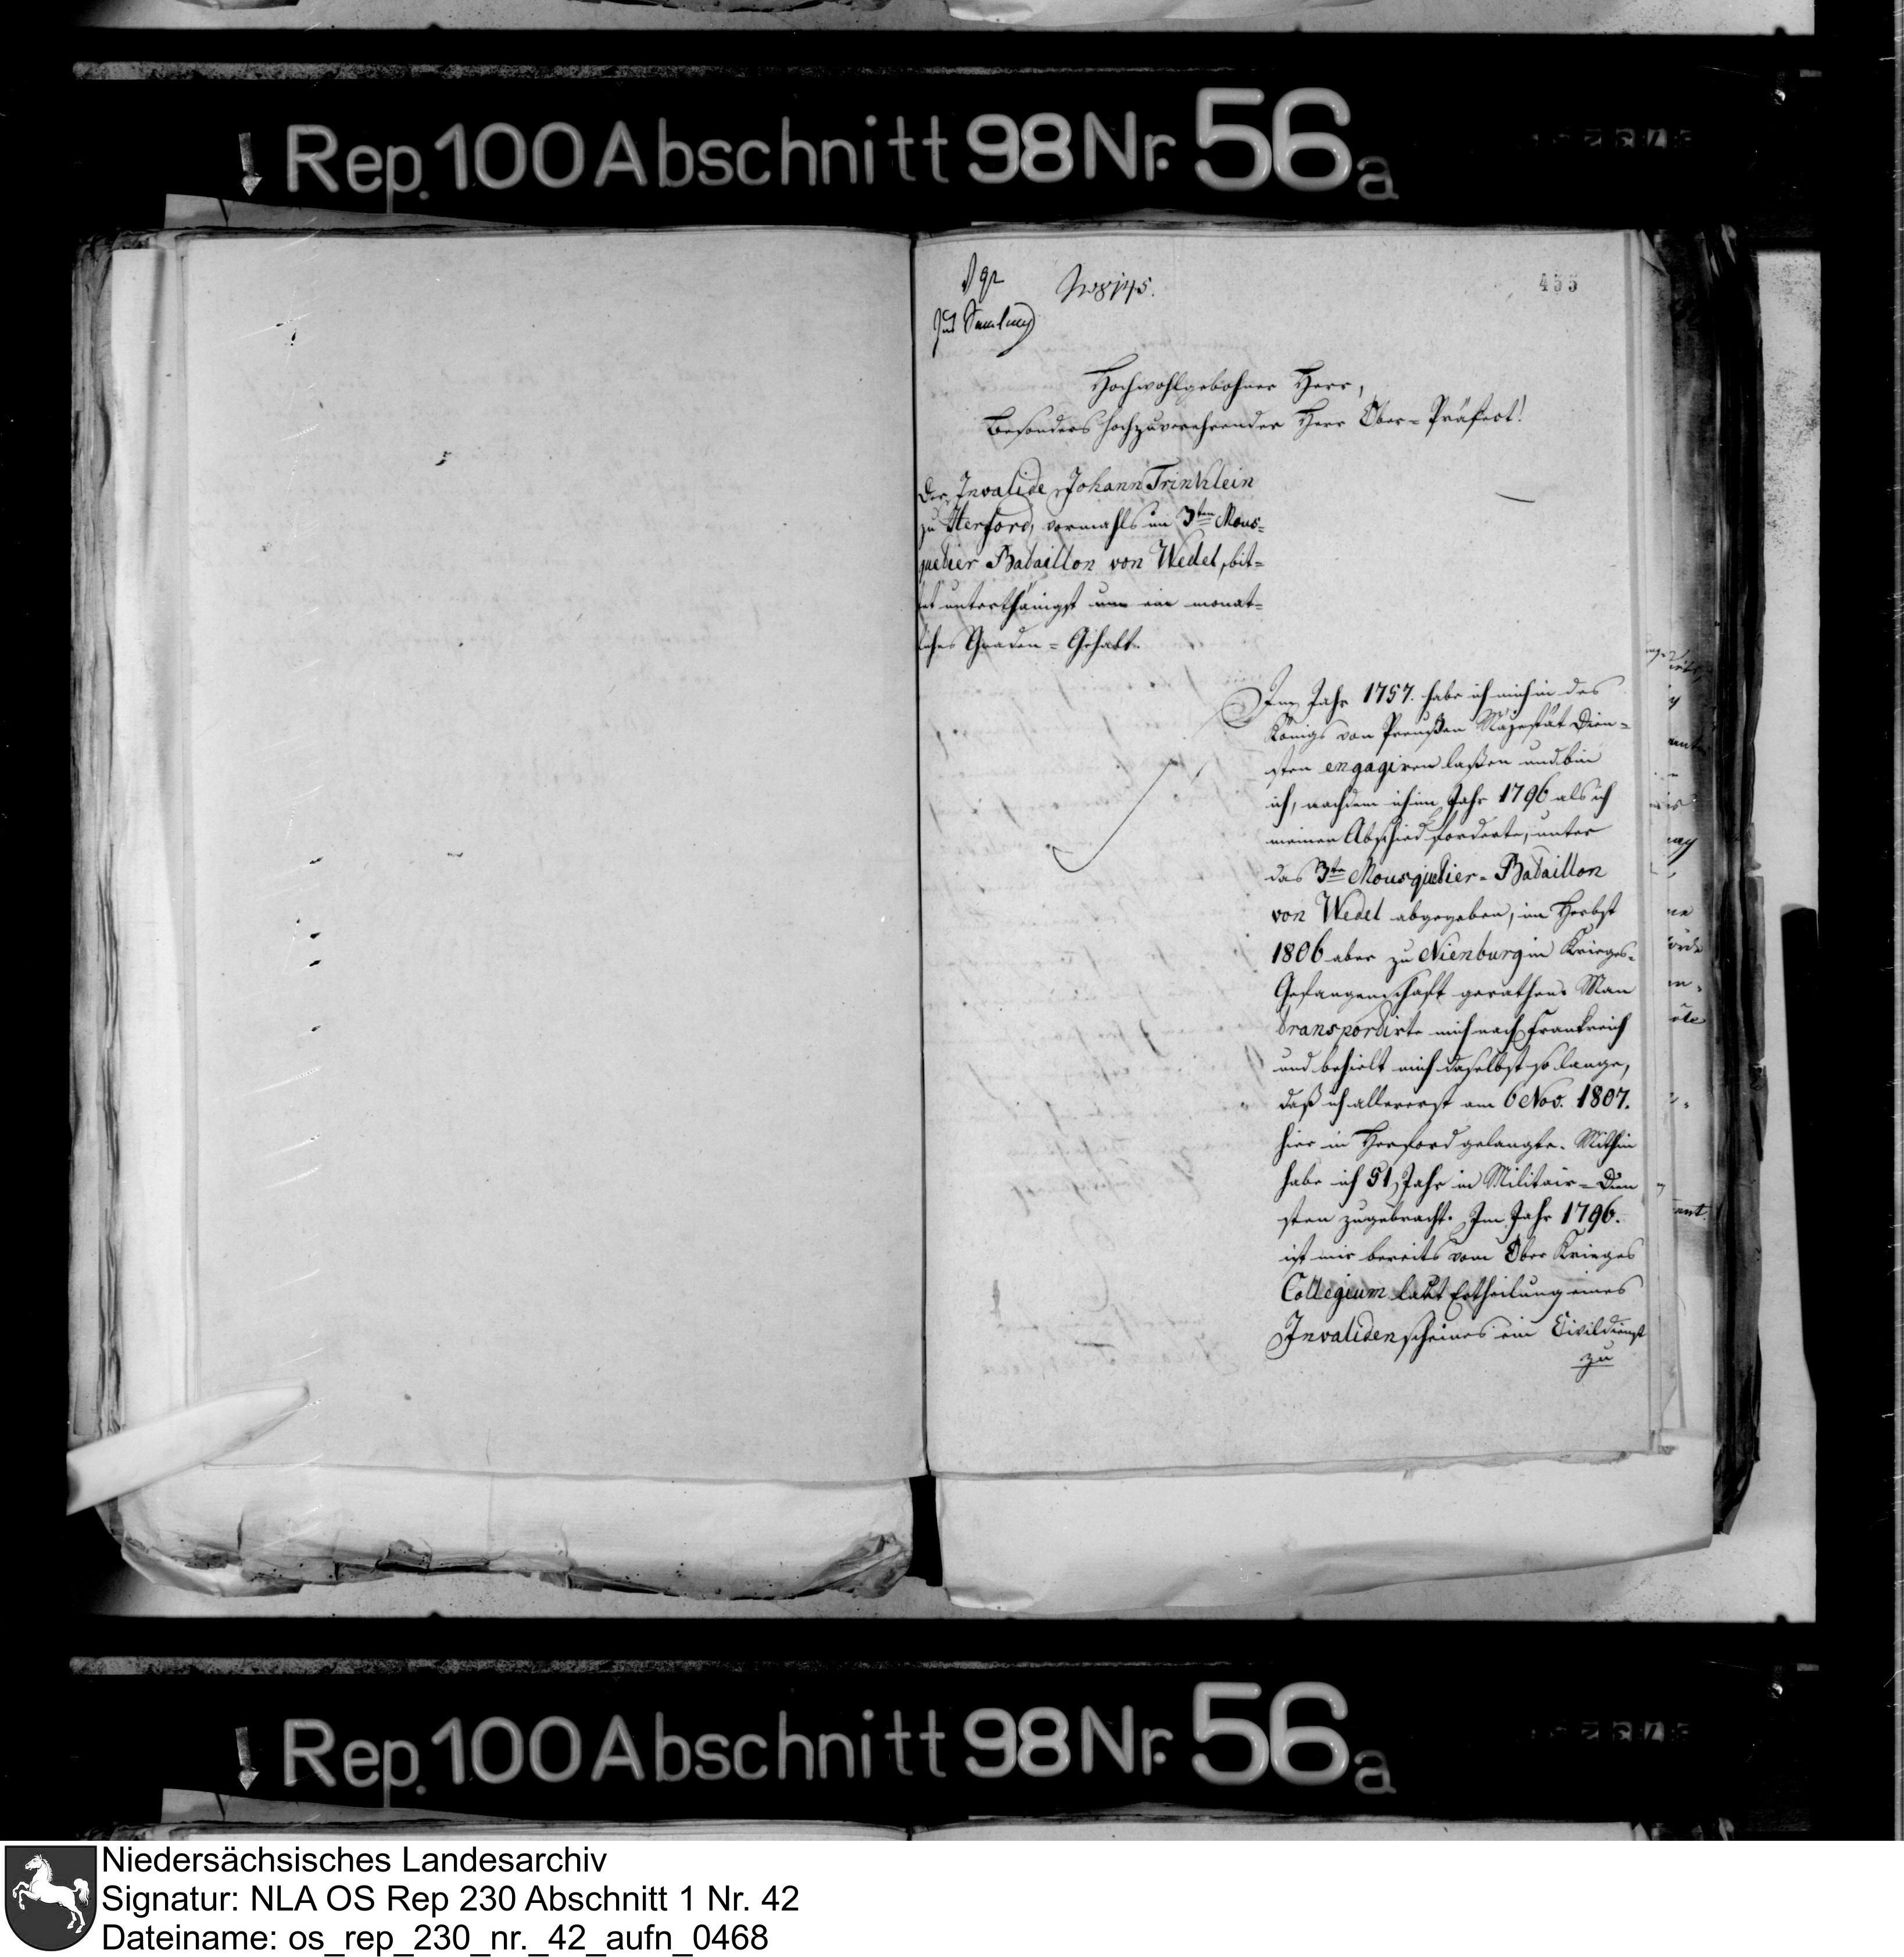 Rep. 100 Abschnitt 98 Nr. 56a
455
Hochwohlgebohner Herr,
Besonders hochzuverehrender Herr Ober-Präfect!
Der Invalide Johann Trinklein
zu Herford, vormahls im 3ten Mous-
quetier Bataillon von Wedel, bit-
tet unterthänigst um ein monat-
liches Gnaden-Gehalt.
Im Jahr 1757. habe ich mich in des
Königs von Preußen Majestät Dien-
sten engagiren laßen und bin
ich, nachdem ich im Jahr 1796 als ich
meinen Abschied forderte, unter
das 3te Mousquetier-Bataillon
von Wedel abgegeben, im Herbst
1806 aber zu Nienburg in Krieges-
Gefangenschaft gerathen. Man
transportirte mich nach Frankreich
und behielt mich daselbst so lange,
daß ich allererst am 6 Nov. 1807.
hier in Herford gelangte. Mithin
habe ich 51 Jahr in Militair-Dien
sten zugebracht. Im Jahr 1796.
ist mir bereits vom Ober Krieges
Collegium laut Ertheilung eines
Invalidenscheines ein Civildienst
zu
Rep. 100 Abschnitt 98 Nr. 56a
Niedersächsisches Landesarchiv
Signatur: NLA OS Rep 230 Abschnitt 1 Nr. 42
Dateiname: os_rep_230_nr._42_aufn_0468